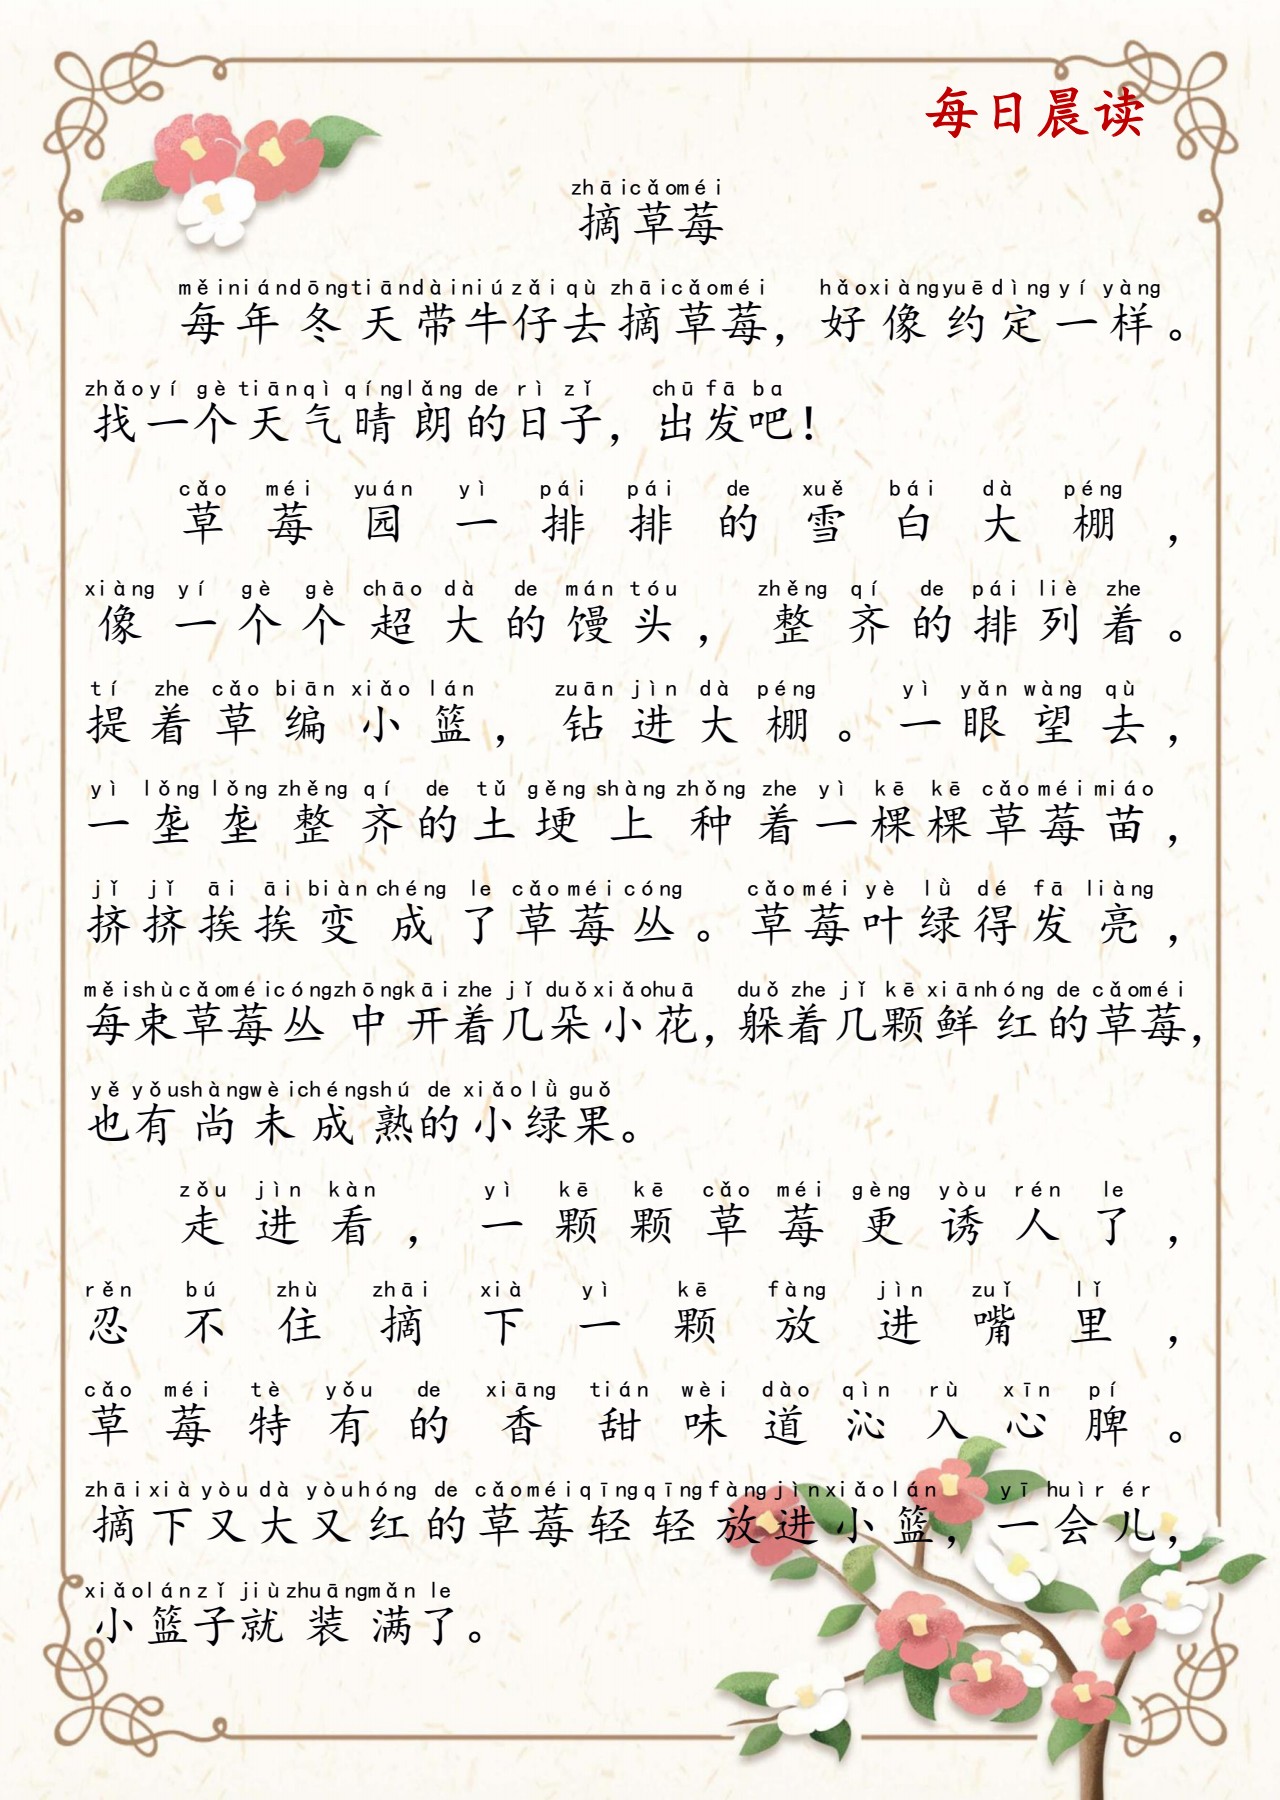 每日晨读
zhāicǎoméi
摘草莓
měiniándōngtiāndàiniúzǎiqù zhāicǎoméi hǎoxiàngyuēdìngyíyàng
每年冬天带牛仔去摘草莓，好像约定一样。
zhǎoyí gè tiānqì qínglǎng de rì zǐ chū fā ba
找一个天气晴朗的日子，出发吧！
cǎo méi yuán yì pái pái de xuě bái dà péng
草莓园一排排的雪白大棚，
xiàng yí gè gè chāo dà de mán tóu zhěng qí de pái liè zhe
像一个个超大的馒头，整齐的排列着。
tí zhe cǎo biān xiǎo lán zuān jìn dà péng yì yǎn wàng qù
提着草编小篮，钻进大棚。一眼望去，
yì lǒng lǒng zhěng qí de tǔ gěng shàng zhǒng zhe yì kē kē cǎo méi miáo
一垄垄整齐的土埂上种着一棵棵草莓苗，
jǐ jǐ āi āi biàn chéng le cǎo méi cóng cǎo méi yè lǜ dé fā liàng
挤挤挨挨变成了草莓丛。草莓叶绿得发亮，
měishùcǎoméicóngzhōngkāizhe jǐ duǒxiǎohuā duǒ zhe jǐ kē xiānhóng de cǎoméi
每束草莓丛中开着几朵小花，躲着几颗鲜红的草莓，
yě yǒushàngwèichéngshú de xiǎolǜ guǒ
也有尚未成熟的小绿果。
zǒu jìn kàn yì kē kē cǎo méi gèng yòu rén le
走进看，一颗颗草莓更诱人了，
rěn bú zhù zhāi xià yì kē fàng jìn zuǐ lǐ
忍不住摘下一颗放进嘴里，
cǎo méi tè yǒu de xiāng tián wèi dào qìn rù xīn pí
草莓特有的香甜味道沁入心脾。
zhāixià yòu dà yòuhóng de cǎoméiqīngqīngfàngjìnxiǎolán yī huìr ér
摘下又大又红的草莓轻轻放进小篮，一会儿，
xiǎolánzǐ jiùzhuāngmǎn le
小篮子就装满了。